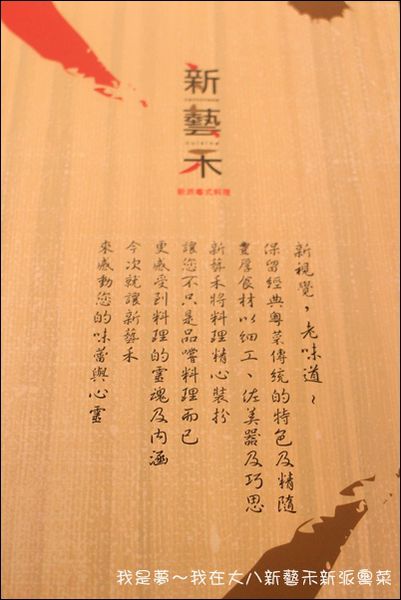 新藝禾
cantonese
cuisine
新派粵式料理
新視覺，老味道～
保留經典粵菜傳統的特色及精隨
豐厚食材以細工、佐美器及巧思
新藝禾將料理精心裝扮
讓您不只是品嚐料理而已
更感受到料理的靈魂及內涵
今次就讓新藝禾
來感動您的味蕾與心靈
我是夢～我在大八新藝禾新派粵菜